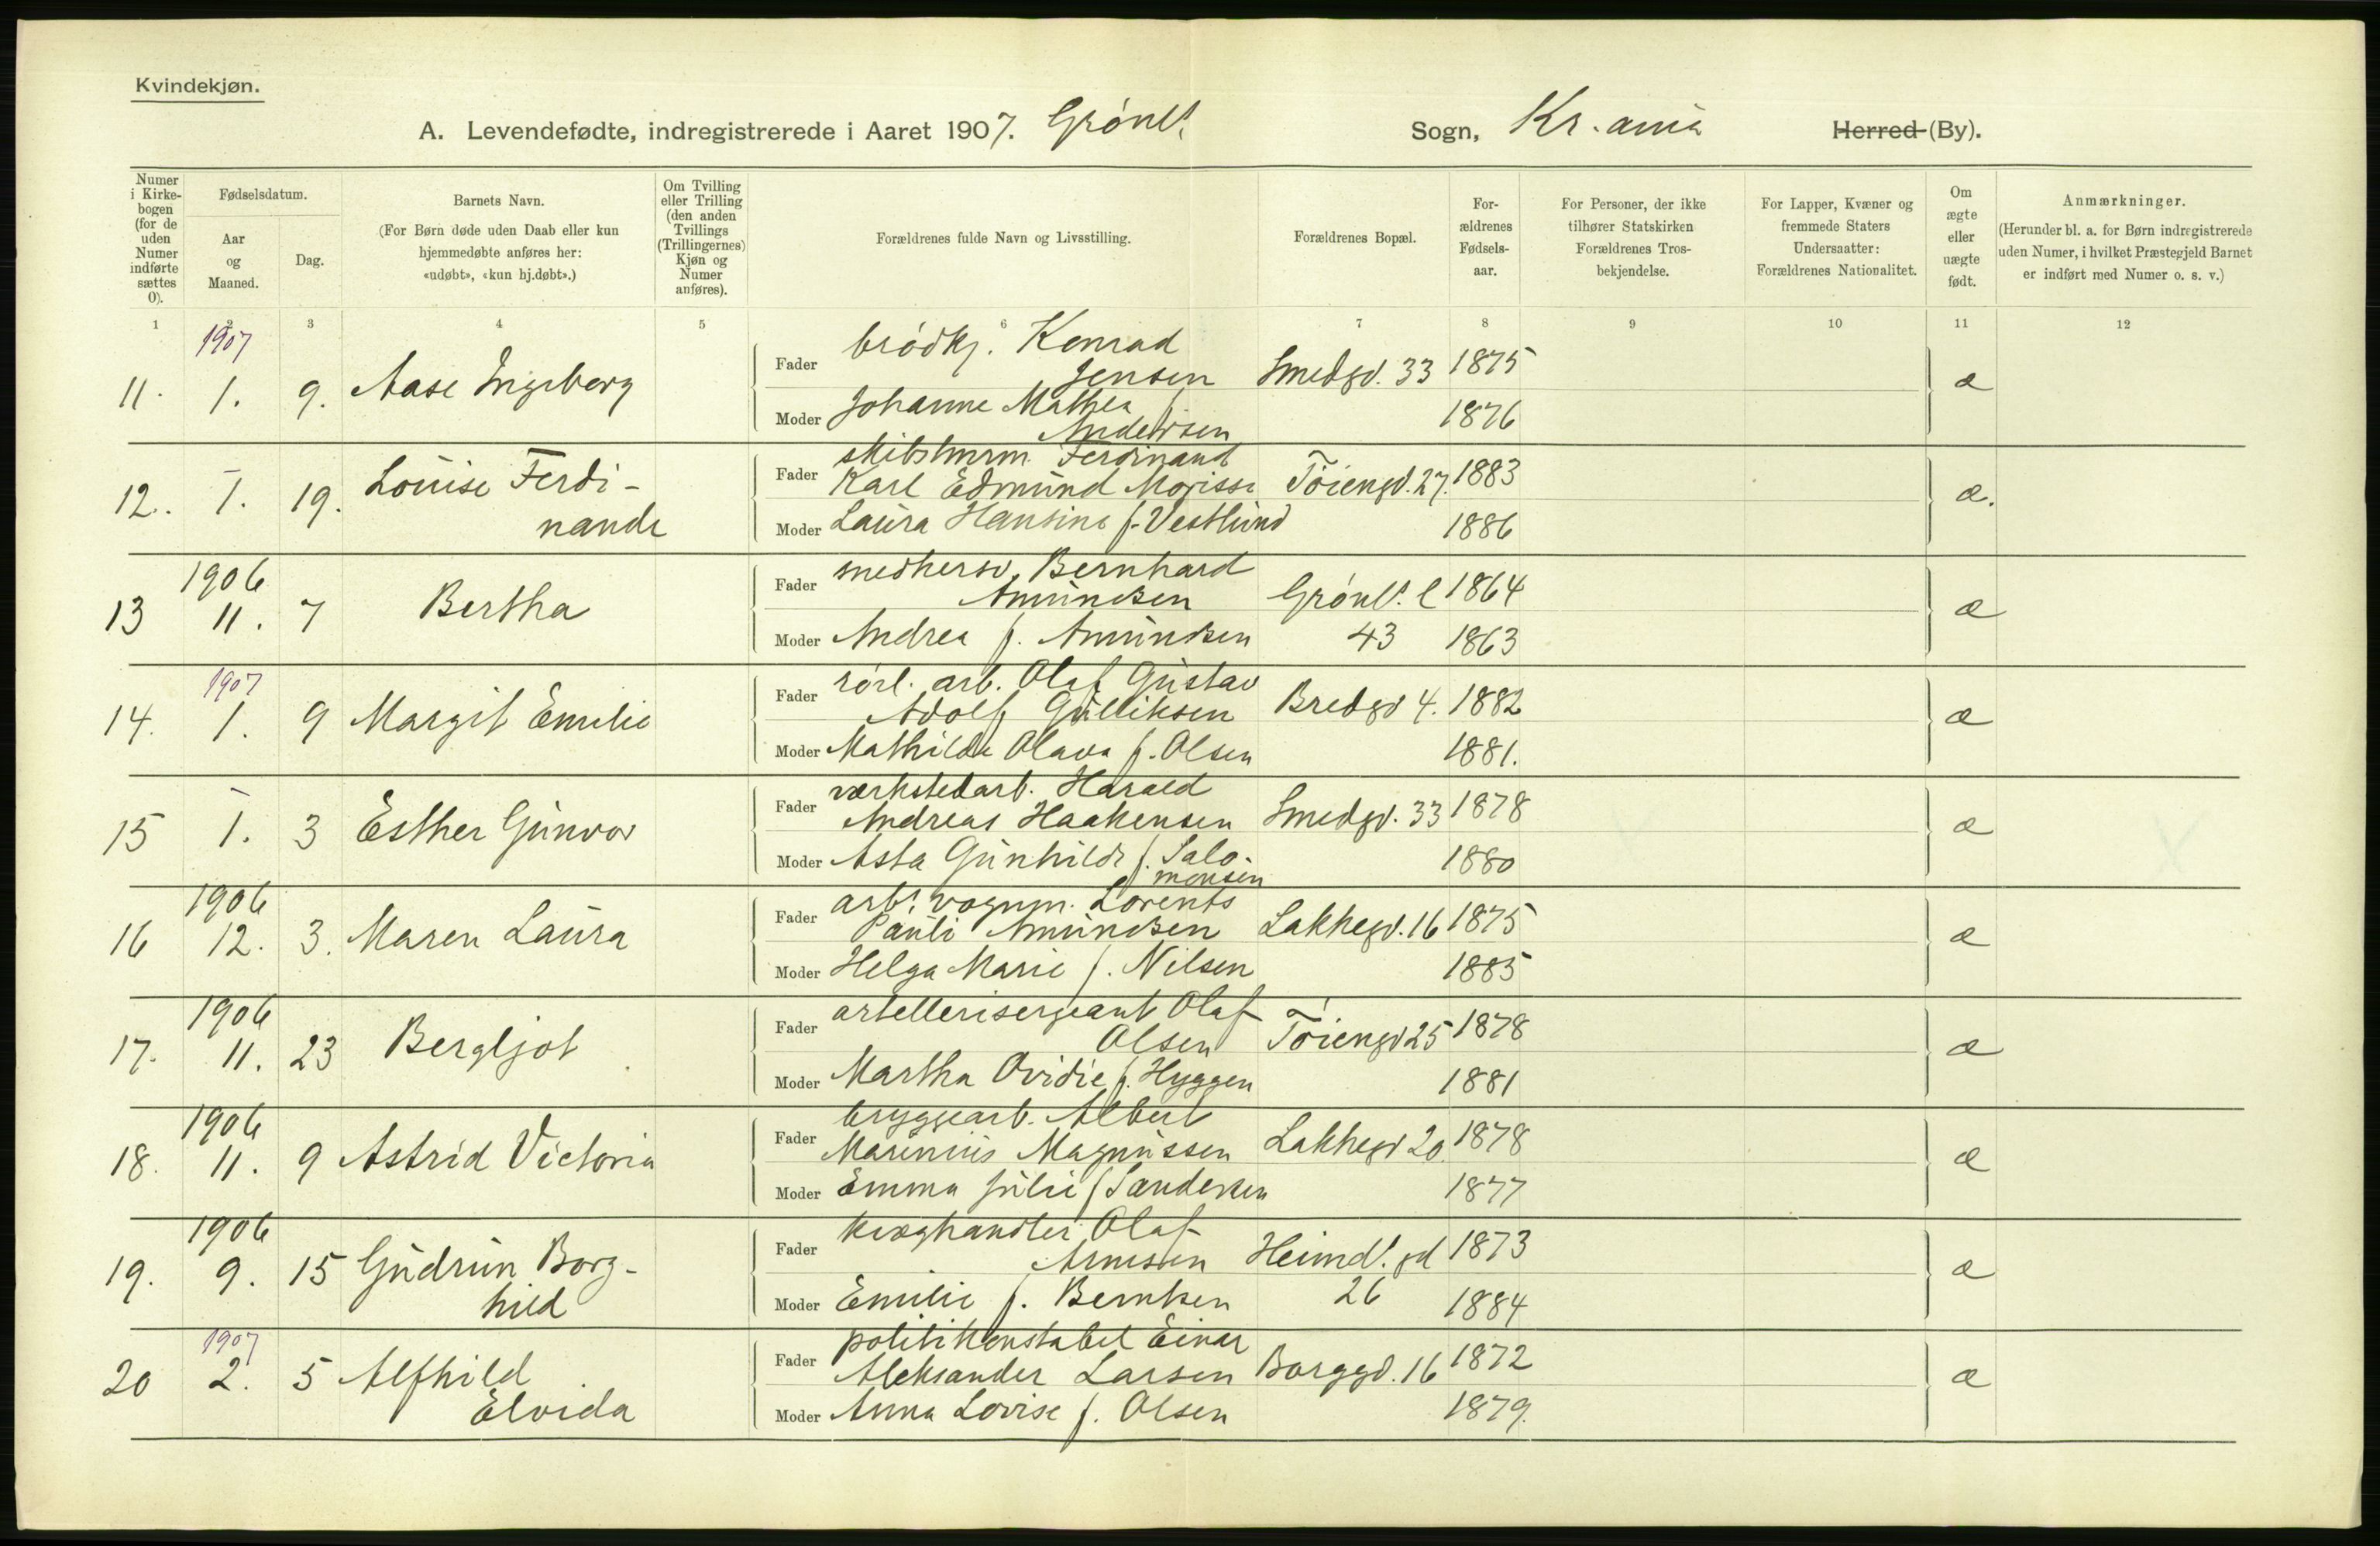 Kvindekjøn.
A. Levendefødte, indregistrerede i Aaret 1907. Grønl. Sogn, Kr.ania Herred (By).
Numer i Kirkebogen (for de uden Numer indførte sættes 0).
Fødselsdatum.
Aar og Maaned.
Dag.
Barnets Navn.
(For Børn døde uden Daab eller kun hjemmedøbte anføres her: «udøbt», «kun hj.døbt».)
Om Tvilling eller Trilling (den anden Tvillings (Trillingernes) Kjøn og Numer anføres).
Forældrenes fulde Navn og Livsstilling.
Forældrenes Bopæl.
Forældrenes Fødselsaar.
For Personer, der ikke tilhører Statskirken Forældrenes Trosbekjendelse.
For Lapper, Kvæner og fremmede Staters Undersaatter: Forældrenes Nationalitet.
Om ægte eller uægte født.
Anmærkninger.
(Herunder bl. a. for Børn indregistrerede uden Numer, i hvilket Præstegjeld Barnet er indført med Numer o. s. v.)
1 2 3 4 5 6 7 8 9 10 11 12
1907
11. 1. 9. Aase Ingeborg
Fader brødkj. Konrad
Jensen Smedgd. 33 1875 æ
Moder Johanne Mathea f.
Andersen 1876
12. 1. 19. Louise Ferdi-
nande
Fader Ferdinand
Karl Edmund Morisse Tøiengd. 27. 1883 æ.
Moder Laura Hansine f. Vestlund 1886
1906
13 11. 7 Bertha
Fader snedkersv. Bernhard
Amundsen Grønl. l 1864 æ
Moder Andrea f. Amundsen 43 1863
1907
14. 1. 9 Margit Emilie
Fader rørl. arb. Olaf Gustav
Adolf Gulliksen Bredgd 4. 1882 æ
Moder Mathilde Olava f. Olsen 1881.
15 1. 3 Esther Gunvor
Fader værkstedarb. Harald
Andreas Haakensen Smedgd. 33 1878 æ
Moder Asta Gunhild f. Salo-
monsen 1880
1906
16 12. 3. Maren Laura
Fader arb. vognm. Lorents
Pauli Amundsen Lakkegd. 16 1875 æ
Moder Helga Marie f. Nilsen 1885
1906
17. 11. 23 Bergljot
Fader artellerisergeant Olaf
Olsen Tøiengd 25 1878 æ
Moder Martha Ovidie f. Hyggen 1881
1906
18. 11. 9 Astrid Victoria
Fader bryggearb. Albert
Marinius Magnussen Lakkegd 20. 1878 æ
Moder Emma Julie f. Sandersen 1877
1906
19. 9. 15 Gudrun Borg-
hild
Fader kvæghandler Olaf
Arnesen Heimd. gd 1873 æ
Moder Emilie f. Berntsen 26 1884
1907
20 2. 5 Alfhild
Elvida
Fader politikonstabel Einar
Aleksander Larsen Borggd. 16 1872 æ
Moder Anna Lovise f. Olsen 1879.